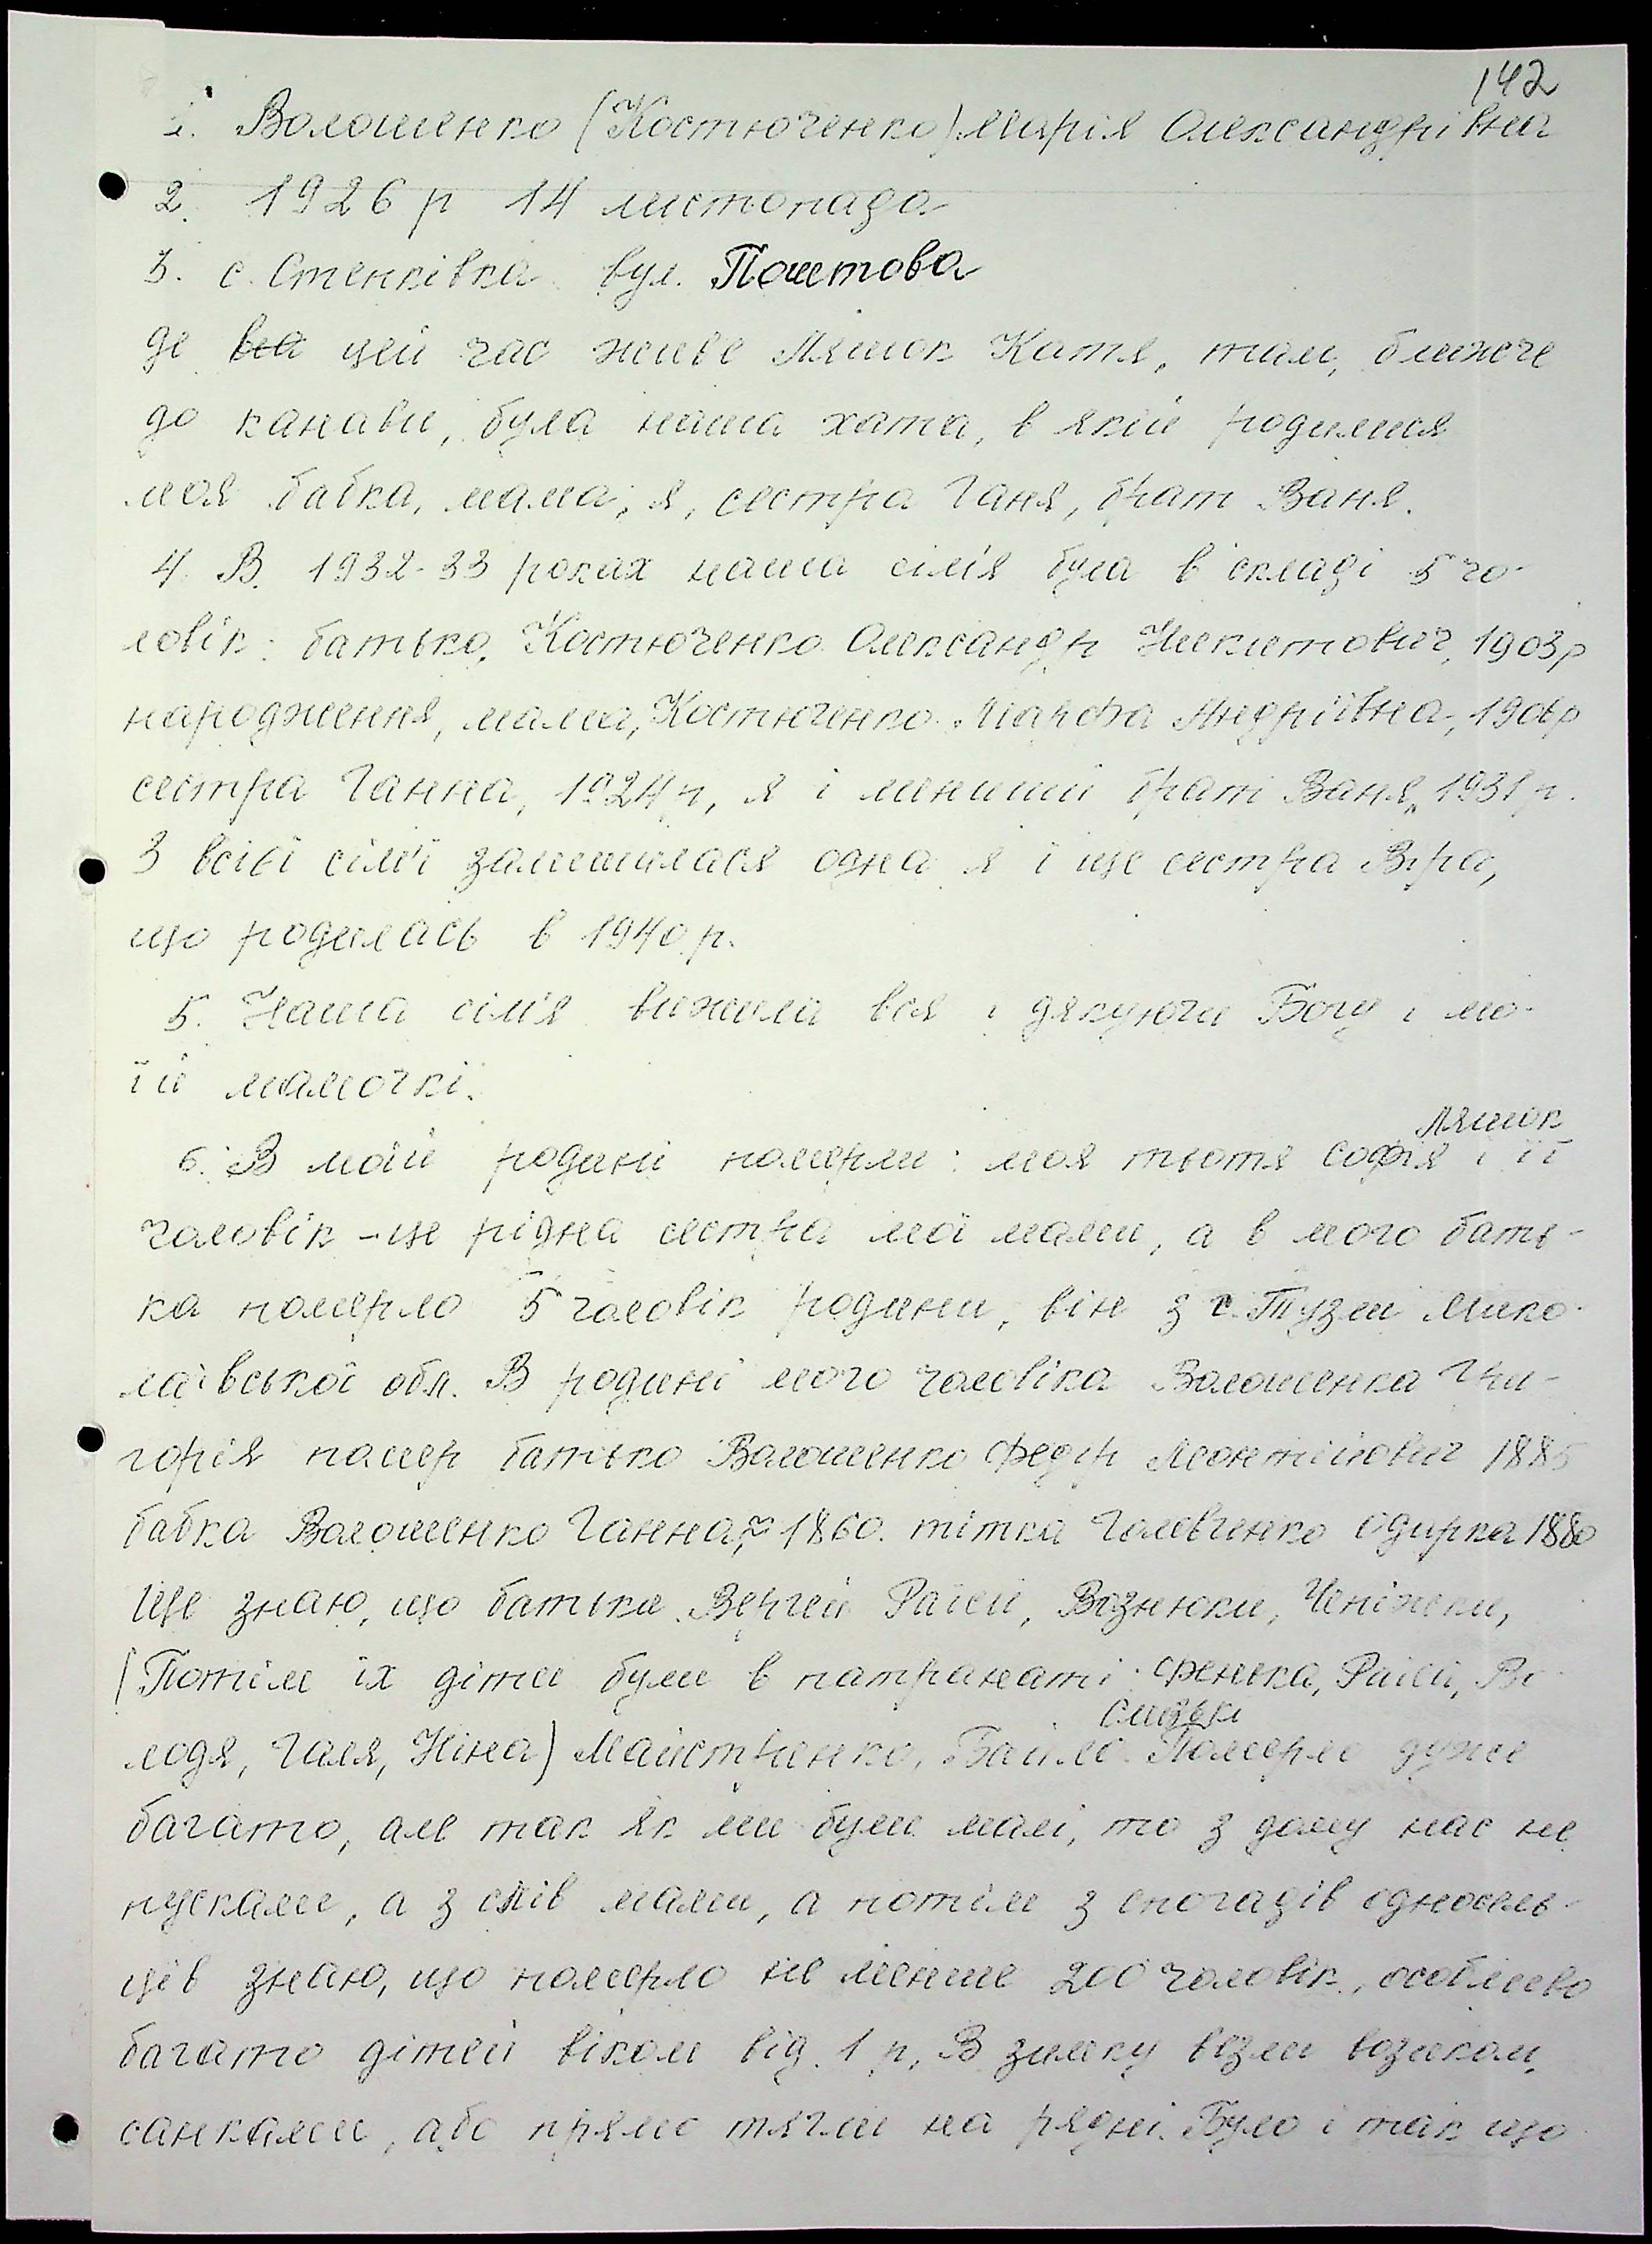 142
1. Волошенко (Костюченко) Марія Олександрівна
2. 1926 р 14 листопада
3. с. Стенківка вул. Поштова
де цей час живе Ляшок Катя, там, ближче
до канави, була наша хата, в якій родилися
моя бабка, мама, я, сестра Ганя, брат Ваня.
4. В 1932-33 роках наша сім'я була в складі 5 чо-
ловік: батько, Костюченко Олександр Никитович, 1903 р
народження, мама, Костюченко Марфа Андріївна, 1906 р
сестра Ганна, 1924 р, я і менший брат Ваня, 1931 р.
З всієї сім'ї залишилася одна я і ще сестра Віра,
що родилась в 1940 р.
5. Наша сім'я вижила вся, дякуючи Богу і мо-
їй мамочкі.
Ляшок
6. В моїй родині померли: моя тьотя Софія і її
чоловік - це рідна сестра мої мами, а в мого бать-
ка померло 5 чоловік родини, він з с. Тузли Мико-
лаївської обл. В родині мого чоловіка Волошенка Гри-
горія помер батько Волошенко Федір Леонтійович 1885
бабка Волошенко Ганна, ≈ 1860. тітка Одирка 1880
Ще знаю, що батьки Раїси, Вознюки,
(Потім їх діти були в патронаті: Фенька, Раїса, Во-
лодя, Галя, Ніна) Майстренко, Померло дуже
багато, але так як ми були малі, то з дому нас не
пускали, а з слів мами, а потім з спогадів односель-
ців знаю, що померло не менше 200 чоловік, особливо
багато дітей віком від 1 р. В зимку везли возиком,
санками, або прямо тягли на рядні. Було і так що